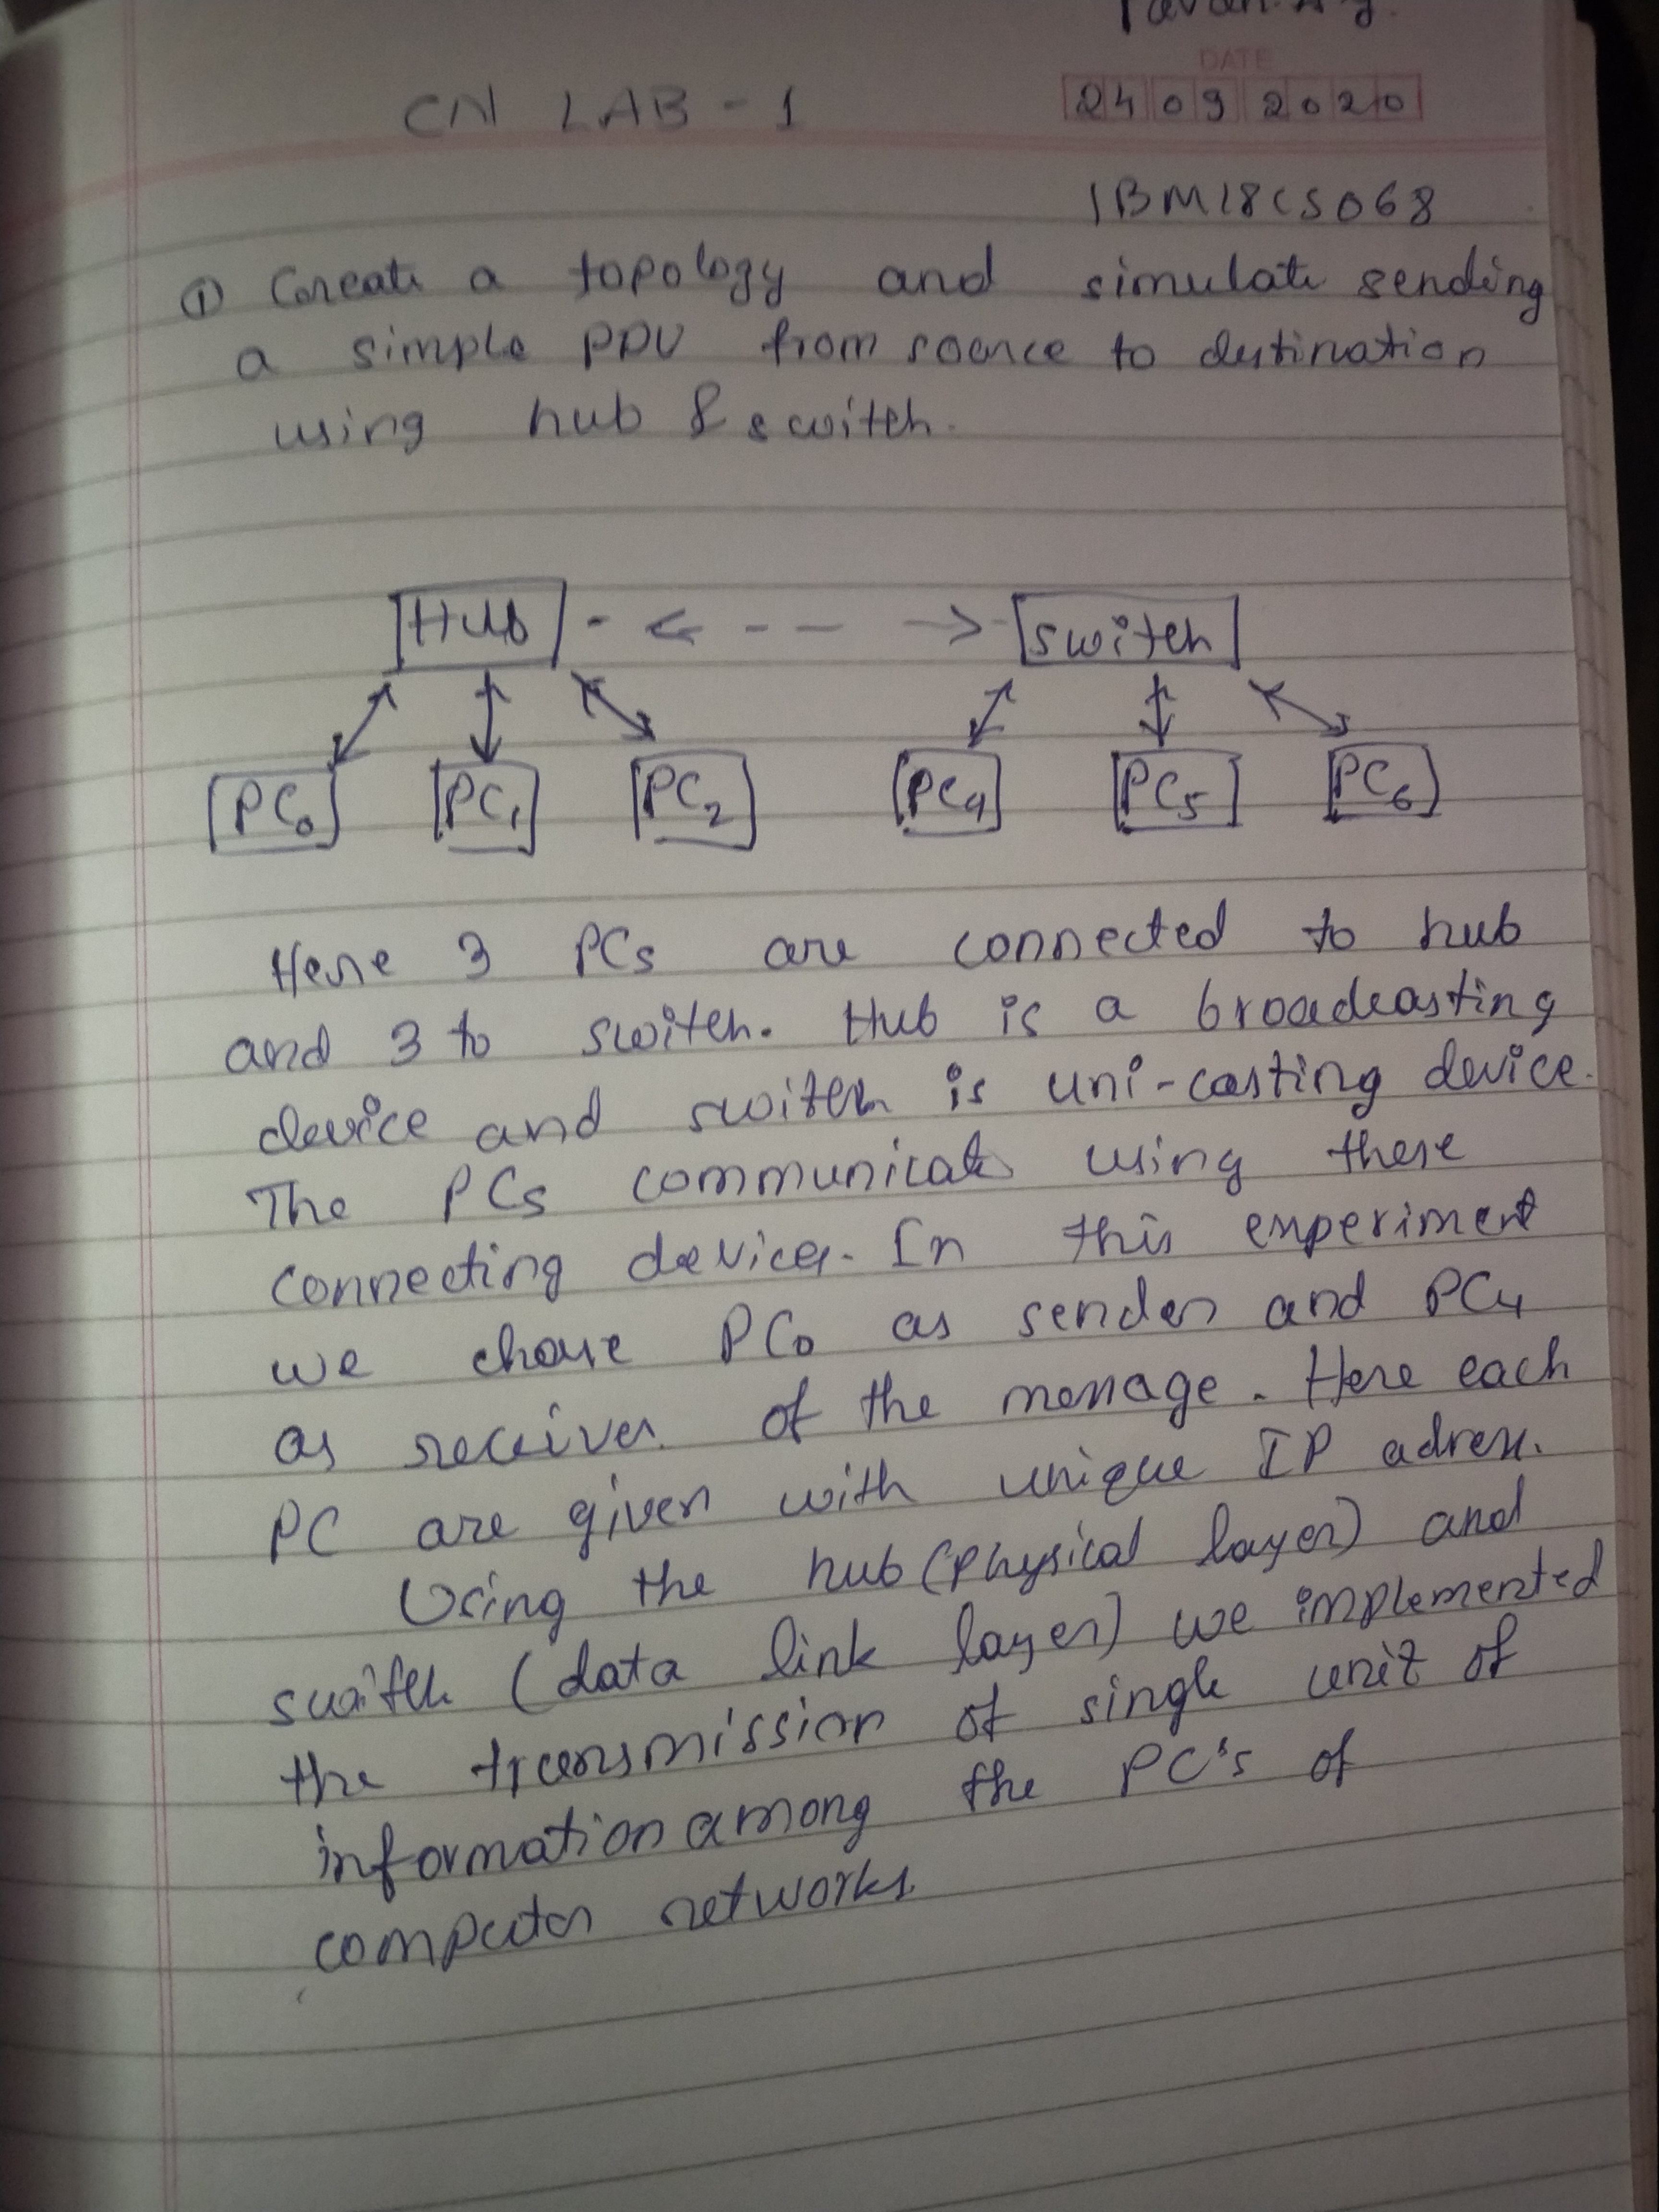 DATE
24 09 2020
CN LAB - 1
1BM18CS068
① Create a topology and simulate sending
a simple PDU from source to destination
using hub & switch.
Hub switch
PC0 PC1 PC2 PC4 PC5 PC6
Here 3 PCs are connected to hub
and 3 to switch. Hub is a broadcasting
device and switch is uni-casting device.
The PCs communicate using these
connecting devices. In this experiment
we chose PC0 as sender and PC4
as receiver of the message. Here each
PC are given with unique IP adress.
Using the hub (physical layer) and
switch (data link layer) we implemented
the transmission of single unit of
information among the PC's of
computer networks